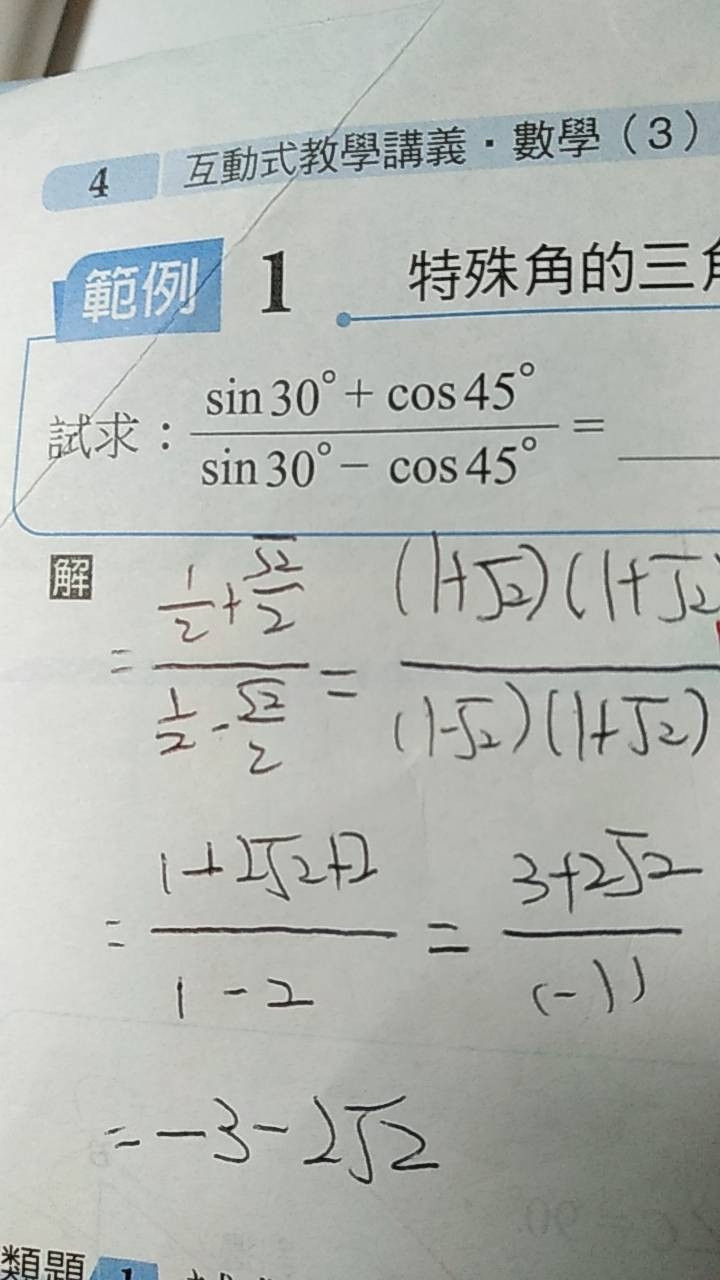 4 互動式教學講義・數學（3）
範例 1 特殊角的三
試求：(sin30°+ cos45°)/(sin30°− cos45°) = ____
解
= (1/2+√2/2)/(1/2-√2/2) = (1+√2)(1+√2)/(1-√2)(1+√2)
= (1+2√2+2)/(1-2) = (3+2√2)/(-1)
= -3-2√2
類題 1